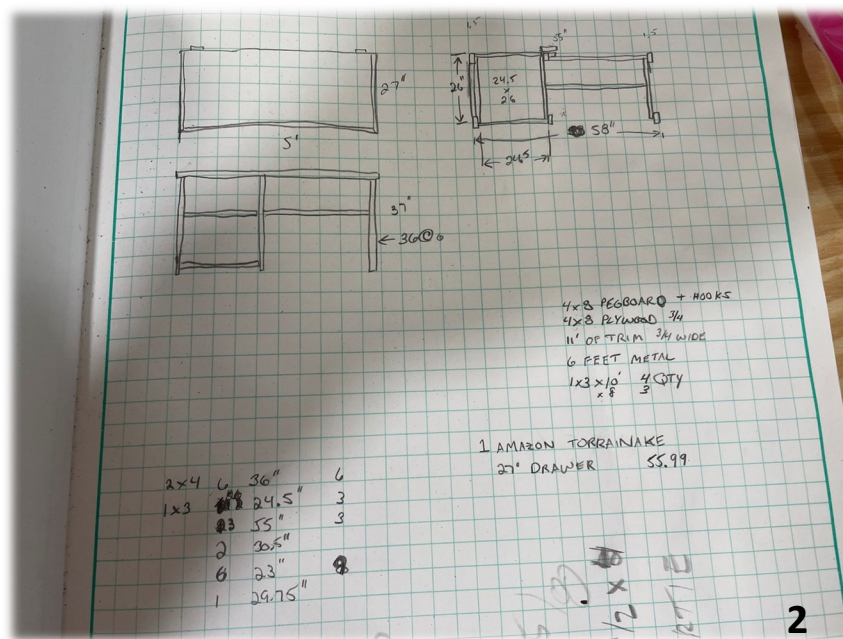 1.5
55"
1.5
27"
5'
26"
24.5
x
26
58"
24.5
37"
36
4x8 PEGBOARD + HOOKS
4x8 PLYWOOD 3/4
11' OF TRIM 3/4 WIDE
6 FEET METAL
1x3 x10' 4 QTY
x 8 3
1 AMAZON TORRAINAKE
27" DRAWER 55.99
2x4 6 36" 6
1x3 24.5" 3
3 55" 3
2 30.5"
6 23"
1 29.75"
2